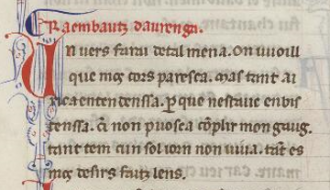 Raembautz daurenga.
Un uers farai de tal mena. On uuoill
que mos cors paresca. mas tant ai
rica entendenssa. Per que nestauc en bis
tenssa. Qi non puosca cõplir mon gaug.
tant tem cun sol ioin non uiua. tãt es
mos desirs faitz lens.